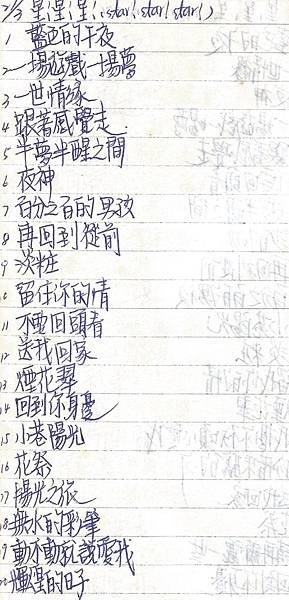 2/3 星!星!星!star!star!star!
1 藍色的午夜
2 一場遊戲一場夢
3 一世情緣
4 跟著感覺走
5 半夢半醒之間
6 夜神
7 百分之百的男孩
8 再回到從前
9 淡粧
10 留住你的情
11 不要回頭看
12 送我回家
13 煙花翠
14 回到你身邊
15 小巷陽光
16 花祭
17 陽光之旅
18 無水的彩筆
19 動不動就說愛我
的日子